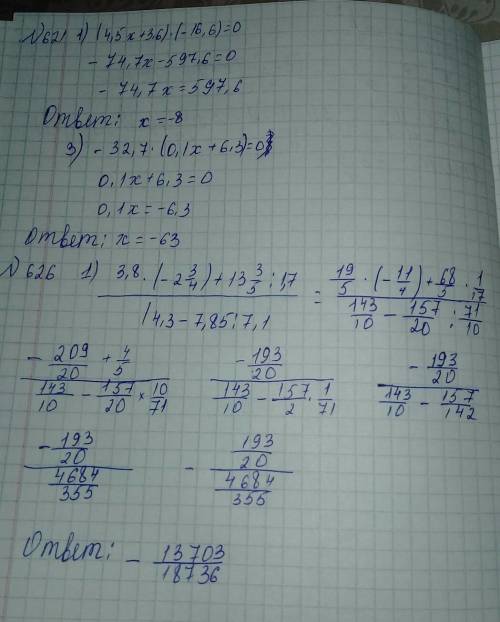 №621 1) (4,5x+36)·(-16,6)=0
- 74,7x-597,6=0
- 74,7x=597,6
Ответ: x=-8
3) - 32,7·(0,1x+6,3)=0
0,1x+6,3=0
0,1x=-6,3
Ответ: x=-63
№626 1) (3,8·(-2 3/4)+13 3/5:1,7)/(14,3-7,85:7,1) = (19/5·(-11/4)+68/5·1/17)/(143/10-157/20:71/10)
(-209/20+4/5)/(143/10-157/20×10/71) (-193/20)/(143/10-157/2·1/71) (-193/20)/(143/10-157/142)
(-193/20)/(4684/355) -(193/20)/(4684/355)
Ответ: - 13703/18736